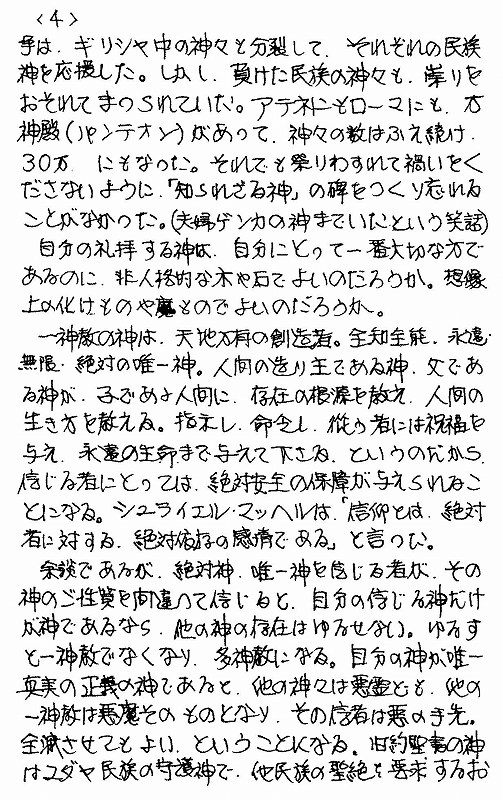 <4>
争は、ギリシヤ中の神々と分裂して、それぞれの民族
神を応援した。しかし、負けた民族の神々も、祟りを
おそれてまつられていた。アテネにもローマにも、万
神殿(パンテオン)があって、神々の数はふえ続け、
30万、にもなった。それでも祭りわすれて禍いをく
ださないように、「知られざる神」の碑をつくり忘れる
ことがなかった。(夫婦ゲンカの神までいたという笑話)
自分の礼拝する神は、自分にとって一番大切な方で
あるのに、非人格的な木や石でよいのだろうか。想像
上の化けものや魔ものでよいのだろうか。
一神教の神は、天地万有の創造者。全知全能、永遠・
無限・絶対の唯一神。人間の造り主である神、父であ
る神が、子である人間に、存在の根源を教え、人間の
生き方を教える。指示し、命令し、従う者には祝福を
与え、永遠の生命まで与えて下さる、というのだから、
信じる者にとっては、絶対安全の保障が与えられるこ
とになる。シユライエル・マッヘルは、「信仰とは、絶対
者に対する、絶対依存の感情である」と言った。
余談であるが、絶対神、唯一神を信じる者が、その
神のご性質を間違って信じると、自分の信じる神だけ
が神であるなら、他の神の存在はゆるせない。ゆるす
と一神教でなくなり、多神教になる。自分の神が唯一
真実の正義の神であると、他の神々は悪霊とも、他の
一神教は悪魔そのものとなり、その信者は悪の手先。
全滅させてもよい、ということになる。旧約聖書の神
はユダヤ民族の守護神で、他民族の聖絶を要求するお